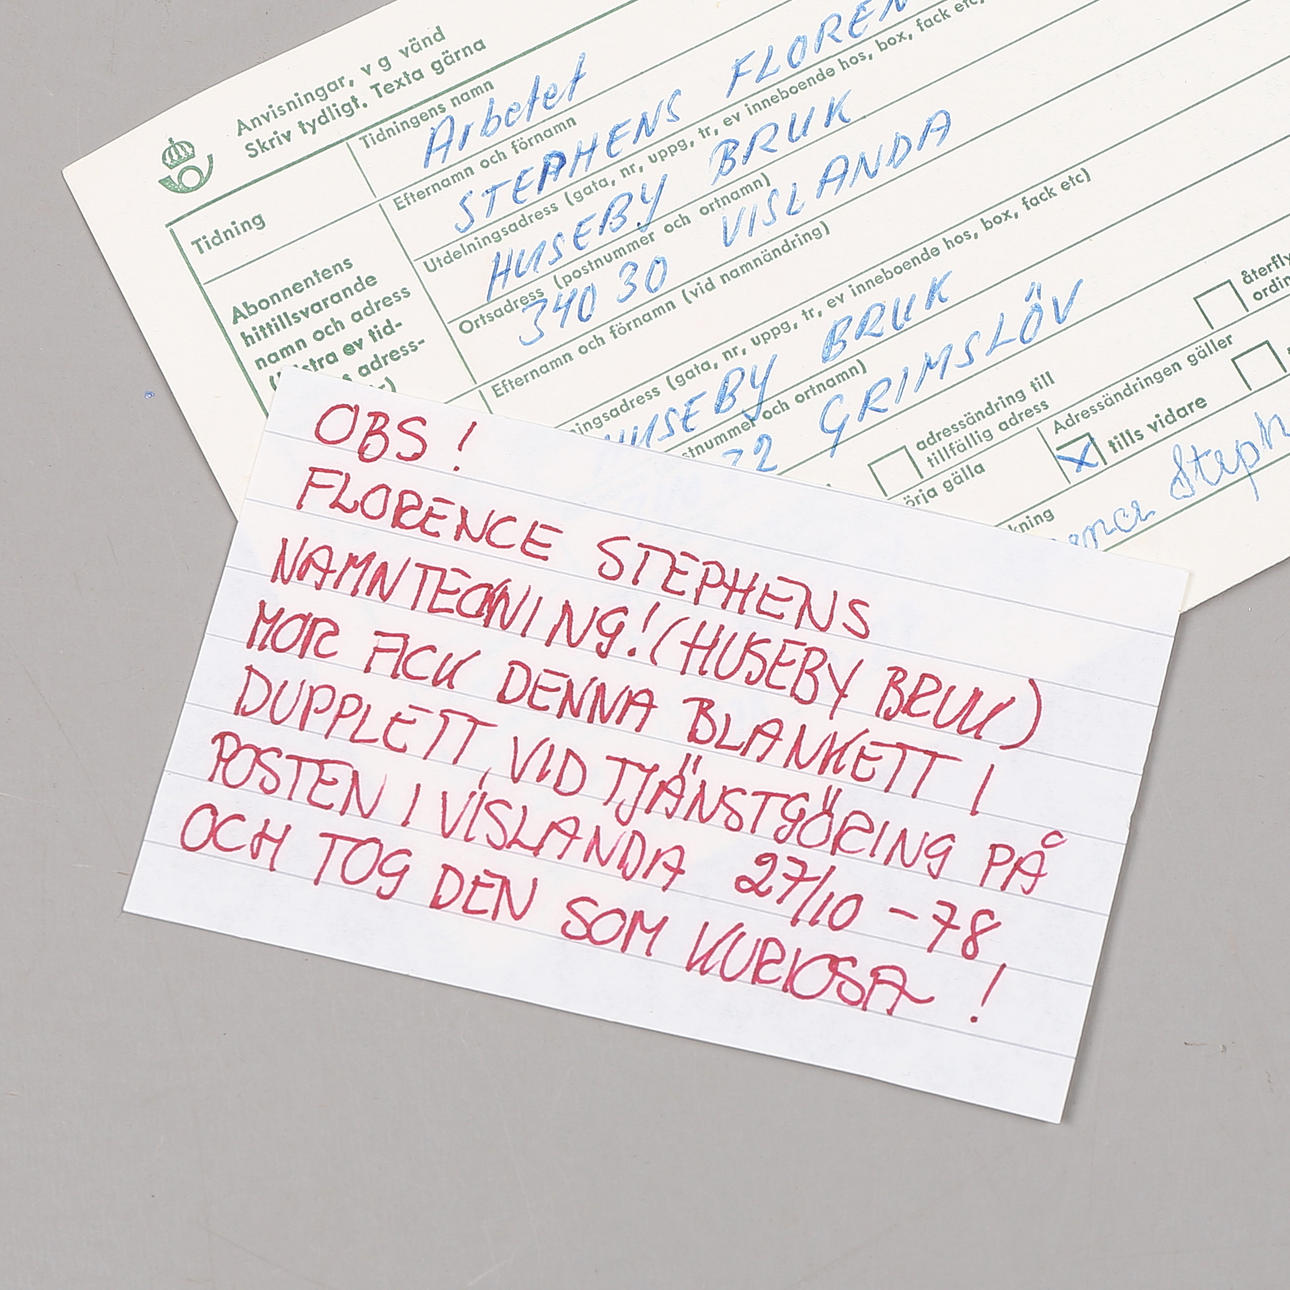 Anvisningar, v g vänd
Skriv tydligt. Texta gärna
Tidning
Tidningens namn
Arbetet
Abonnentens
hittillsvarande
namn och adress
ev tid-
adress-
Efternamn och förnamn
STEPHENS FLOREN
Utdelningsadress (gata, nr, uppg, tr, ev inneboende hos, box, fack etc)
HUSEBY BRUK
Ortsadress (postnummer och ortnamn)
340 30 VISLANDA
Efternamn och förnamn (vid namnändring)
ningsadress (gata, nr, uppg, tr, ev inneboende hos, box, fack etc)
HUSEBY BRUK
stnummer och ortnamn)
72 GRIMSLÖV
adressändring till
tillfällig adress
återfly
ordin
örja gälla
Adressändringen gäller
X tills vidare
kning
Steph
OBS !
FLORENCE STEPHENS
NAMNTECKNING! (HUSEBY BRUK)
MOR FICK DENNA BLANKETT I
DUPPLETT, VID TJÄNSTGÖRING PÅ
POSTEN I VISLANDA 27/10 -78,
OCH TOG DEN SOM KURIOSA !